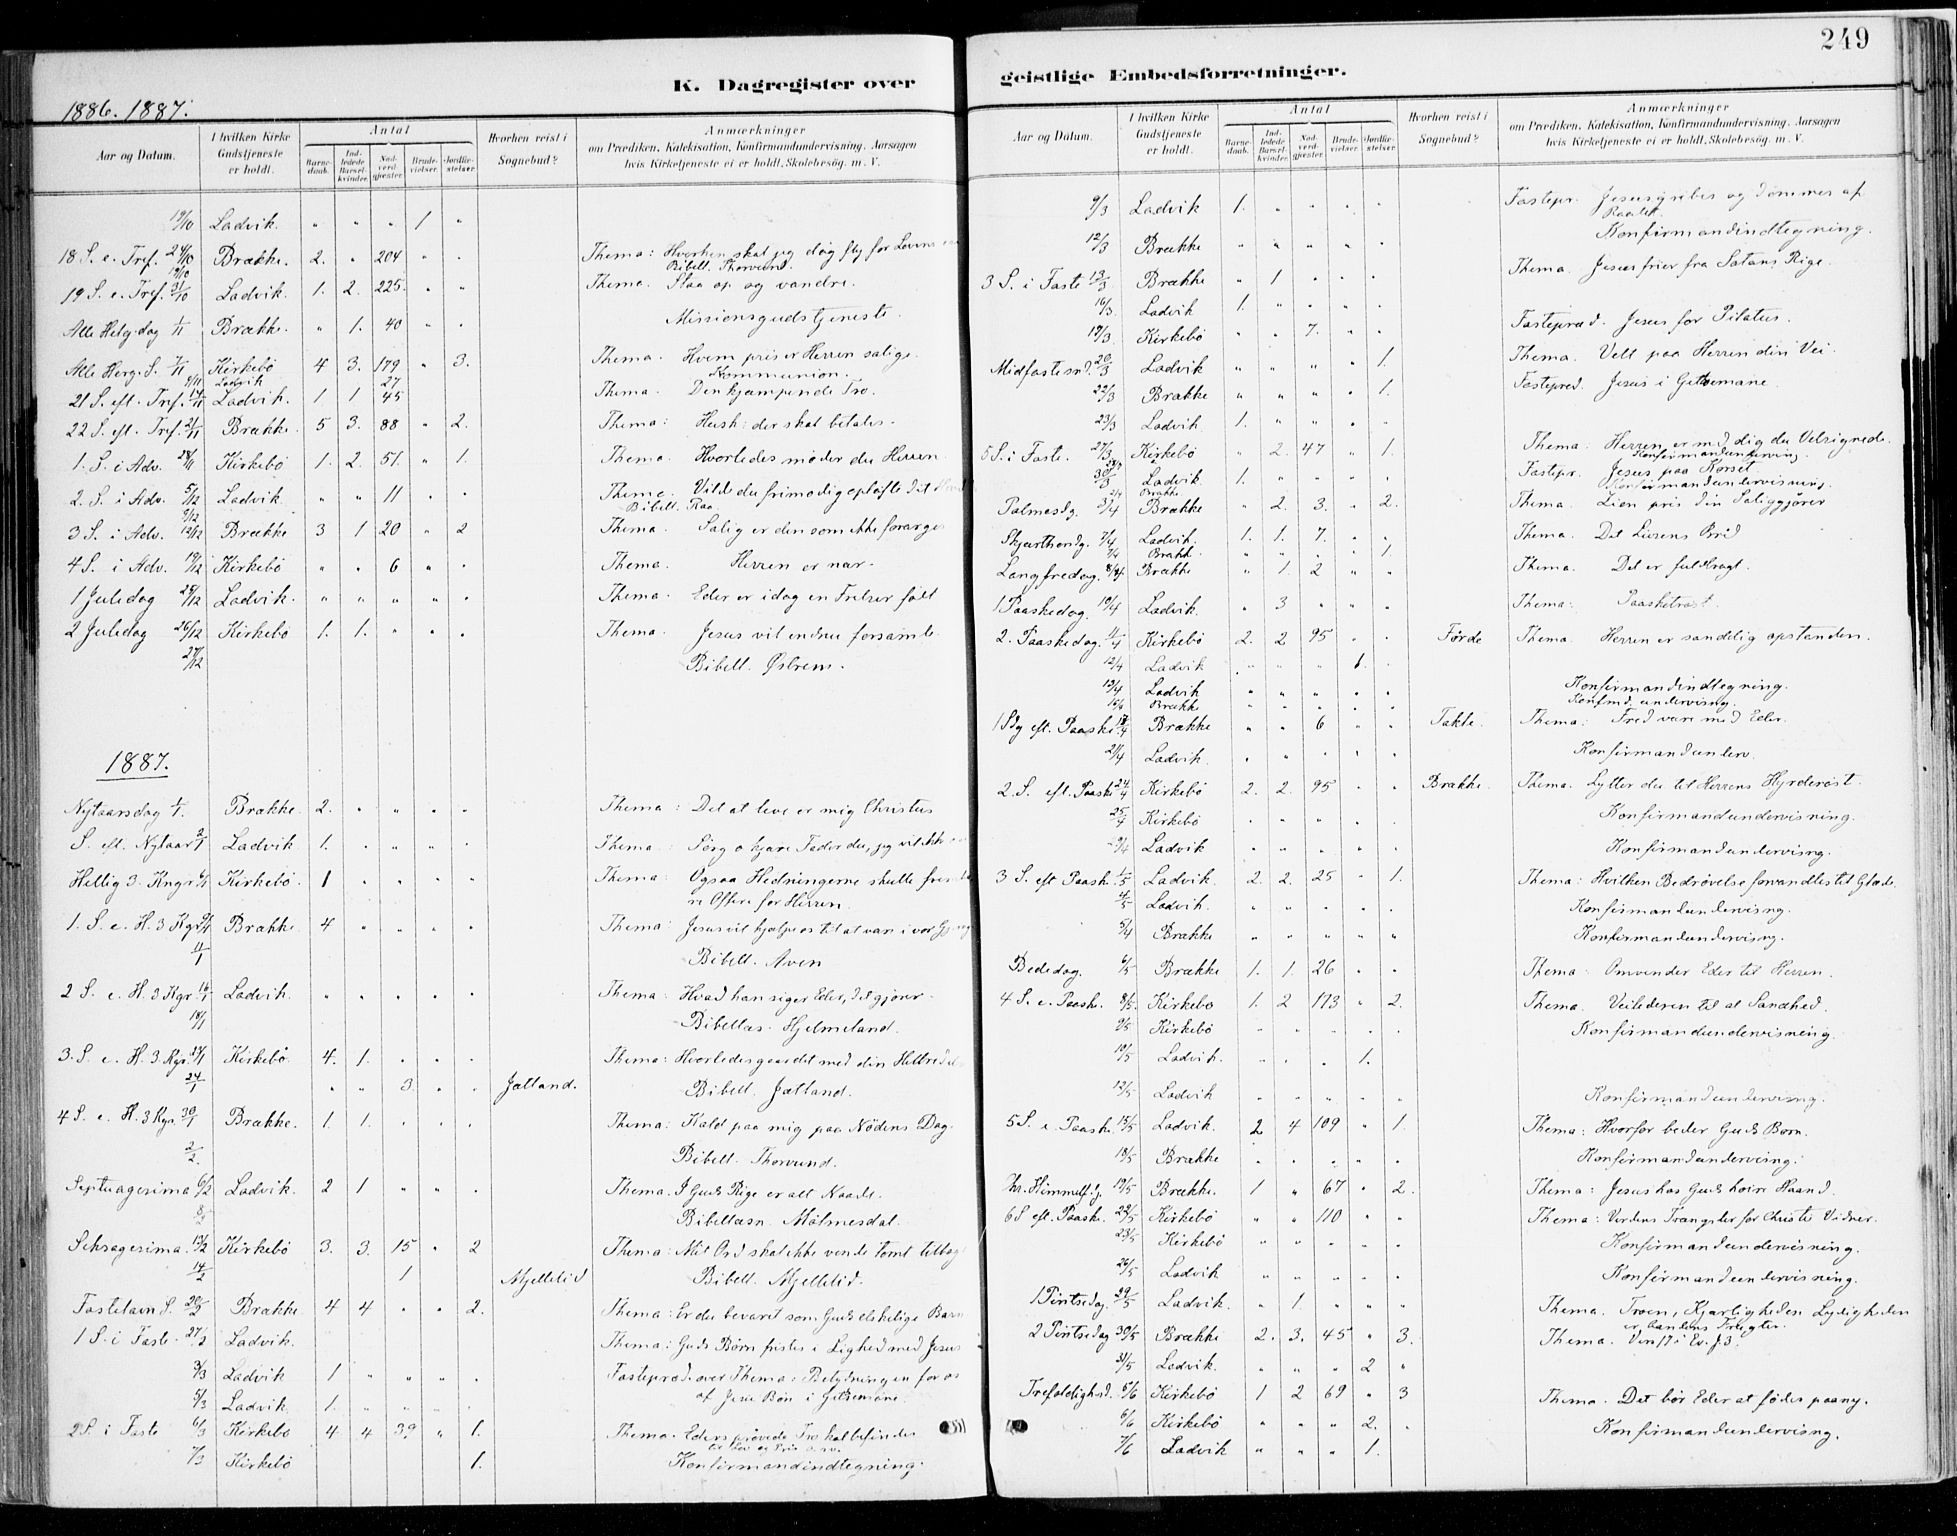 249
K. Dagregister over geistlige Embedsforretninger.
1886. 1887.
Aar og Datum. I hvilken Kirke Gudstjeneste er holdt. Antal Barnedaab. Indledede Barselkvinder. Nadverdgjæster. Brudevielser. Jordfæstelser. Hvorhen reist i Sognebud? Anmærkninger om Prædiken, Katekisation, Konfirmandundervisning, Aarsagen hvis Kirketjeneste ei er holdt, Skolebesøg. m. V.
19/10 Ladvik. " " " 1 "
18 S. e. Tref. 24/10 Brække. 2. " 204 " " Thema: Hvorhen skal jeg dog fly for Lovens
19/10 Bibell. Thorvund.
19 S. e. Tref. 31/10 Ladvik. 1. 2. 225. " " Thema. Staa op og vandre.
Alle Helg. dag 1/11 Brække. " 1. 40 " " Missionsgudstjeneste.
Alle Helg. S. 7/11 Kirkebö 4 3. 179 " 3. Thema. Hvem priser Herren salige.
9/11 Ladvik 27 Kommunion.
21 S. eft. Tref. 14/11 Ladvik. 1 1 45 Thema. Den kjæmpende Tro.
22 S. eft. Tref. 21/11 Brække. 5 3. 88 " 2. Thema: Husk: der skal betales.
1. S. i Adv. 28/11 Kirkebö 1. 2. 51. " 1. Thema. Hvorledes møder du Herren
2. S. i Adv. 5/12 Ladvik " " 11 " " Thema. Vil du frimodig opløfte dit
9/12 Bibell. Raa.
3 S. i Adv. 12/12 Brække 3 1 20 " 2 Thema. Salig er den som ikke forarges
4 S. i Adv. 19/12 Kirkebö " " 6 " " Thema. Herren er nær.
1 Juledag 25/12 Ladvik. " " " " " Thema. Eder er idag en Frelser født
2 Juledag 26/12 Kirkebö 1. 1. " " " Thema. Jesus vil endnu forsamle
27/12 Bibell. Østrem.
1887.
Nytaarsdag 1/1. Brække. 2. " " " " Thema: Det at leve er mig Christus
S. eft. Nytaar 2/1 Ladvik 1. " " " " Thema. Sörg o kjære Fader du, jeg vil ikke
Hellig 3. Kngr. 6/1 Kirkebö. 1 " " " " Thema: Ogsaa Hedningerne skulle frem
re Offere for Herren.
1. S. e. H. 3 Kgr. 9/1 Brække. 4 " " " " Thema: Jesus vil hjælpe os til at være i vor
11/1 Bibell. Aven
2 S. e. H. 3 Kgr. 16/1 Ladvik. " " " " " Thema: Hvad han siger Eder, det gjører.
18/1 Bibellæs. Hjelmeland.
3. S. e. H. 3 Kgr. 23/1 Kirkebö. 4. 1. " " " Thema: Hvorledes gaar det med din Helbredelse
24/1 " " 3 " " Jætland. Bibell. Jætland.
4 S. e. H. 3 Kgr. 30/1 Brække. 1. 1. " " " Thema: Kald paa mig paa Nødens Dag.
2/2. Bibell. Thorvund.
Septuagesima 6/2 Ladvik. 2 1 " " " Thema. I Guds Rige er alt Naade.
8/2 Bibellæsn. Molmesdal.
Seksagesima. 13/2 Kirkebö 3. 3. 15 " 2 Thema: Mit Ord skal ikke vende tomt tilbag
14/2 1 Mjellelid Bibell. Mjellelid.
Fastelavn S. 20/2 Brække 4 4 " " 2. Thema: Er du bevaret som Guds elskelige Barn
1 S. i Faste. 27/2 Ladvik. Thema: Guds Børn fristes i Lighed med Jesus
3/3 Ladvik 1 " " " " Fastepræd. over Thema: Betydningen for os
5/3 Ladvik 1. " " " " af Jesu Bön i Getsemane.
2 S. i Faste 6/3 Kirkebö 4 4 39 " 1. Thema. Eders prøvede Tro skal befindes
til Lov og Pris o.s.v.
7/3 Kirkebö 1. Konfirmandindtegning.
Aar og Datum. I hvilken Kirke Gudstjeneste er holdt. Antal Barnedaab. Indledede Barselkvinder. Nadverdgjæster. Brudevielser. Jordfæstelser. Hvorhen reist i Sognebud? Anmærkninger om Prædiken, Katekisation, Konfirmandundervisning, Aarsagen hvis Kirketjeneste ei er holdt, Skolebesøg. m. V.
9/3 Ladvik 1. " " " " Fastepr. Jesus gribes og dömmes af
Raadet.
12/3 Brække " " " " " Konfirmandindtegning.
3 S. i Faste 13/3 Brække " 1 " " " Thema. Jesus frier fra Satans Rige.
16/3 Ladvik 1. " " " " Fastepræd. Jesus for Pilatus.
19/3 Kirkebö " " 7. " "
Midfastesnd. 20/3 Ladvik " " " " 1. Thema. Velt paa Herren din Vei.
22/3 Brække " " " " 1. Fastepræd. Jesus i Getsemane.
23/3 Ladvik 1. " " " "
5 S. i Faste. 27/3 Kirkebö " 2. 47 " 1. Thema: Herren er med dig du Velsignede.
Konfirmandunderving.
30/3 Ladvik 1. " " " " Fastepr. Jesus paa Korset
2/4 Brække Konfirmandundervisning.
Palmesdg. 3/4 Brække " 2. 3. " 2. Thema. Zion pris din Saliggjører
Skjærthorsdg. 7/4 Ladvik. 1. 1. 7. " " Thema. Det Livsens Bröd
7/4 Brækk. " " " " 1.
Langfredag. 8/4 Brække " 1. 2 " " Thema. Det er fuldbragt.
1 Paaskedag. 10/4 Ladvik. " 3 " " " Thema: Paasketrøst
2. Paaskedag. 11/4 Kirkebö 2. 2 95 " " Förde Thema. Herren er sandelig opstanden.
12/4 Ladvik " " " 1. "
13/4 Ladvik " " " " " Konfirmandindtegning.
15/4 Brække " " " " " Konfmd. undervisng.
1 Sdg eft. Paaske 17/4 Brække " " 6 " " Takle. Thema: Fred være med Eder.
21/4 Ladvik. " " " " " Konfirmandunderv.
2. S. eft. Paaske 24/4 Kirkebö 2. 2. 95 " " Brække. Thema. Lytter du til Herrens Hyrderöst.
25/4 Kirkebö " " " " " Konfirmandundervisning.
Ladvik " " " " " Konfirmandundervisng.
3 S. eft Paask. 1/5 Ladvik. 2. 2. 25 " 1. Thema: Hvilken Bedrøvelse forvandles til Glæde.
4/5 Ladvik. " " " " " Konfirmandundervisng.
5/4 Brække " " " " " Konfirmandundervisng.
Bededag. 6/5 Brække 1. 1. 26 " " Thema: Omvender Eder til Herren.
4 S. e. Paask. 8/5. Kirkebö 1. 2 173 " 2. Thema. Veilederen til al Sandhed.
9/5 Kirkebö " " " " " Konfirmandundervisning.
10/5 Ladvik. " " " 1.
12/5 Ladvik " " " " " Konfirmandundervisng.
5 S. e. Paask. 15/5 Ladvik. 2 4 109 " 1. Thema: Hvorfor beder Guds Børn.
18/5 Brække " " " " " Konfirmandundervisng.
Kr. Himmelf. dg. 19/5 Brække. 1 " 67 " 2. Thema: Jesus hos Guds høire Haand.
6 S eft. Paask. 22/5 Kirkebö " " 110 " " Thema: Verdens Trængsler for Christi Vidner.
23/5 Kirkebö " " " " " Konfirmandundervisning.
26/5 Ladvik " " " " " Konfirmandundervisning.
1 Pintsedag. 29/5 Ladvik. " 1. " " " Thema. Troen, Kjærligheden Lydigheden
er Aandens Frugter.
2 Pintsedag 30/5 Brække 2. 3. 45 " 3. Thema. Vers 17 i Ev. J 3.
31/5 Ladvik " " " 2 "
Trefoldighed. 5/6 Kirkebö 1 2 69 " 3 Thema. Det bør Eder at fødes paany.
6/6 Kirkebö " " " 2. " Konfirmandundervisng.
7/6 Ladvik " " " 1.